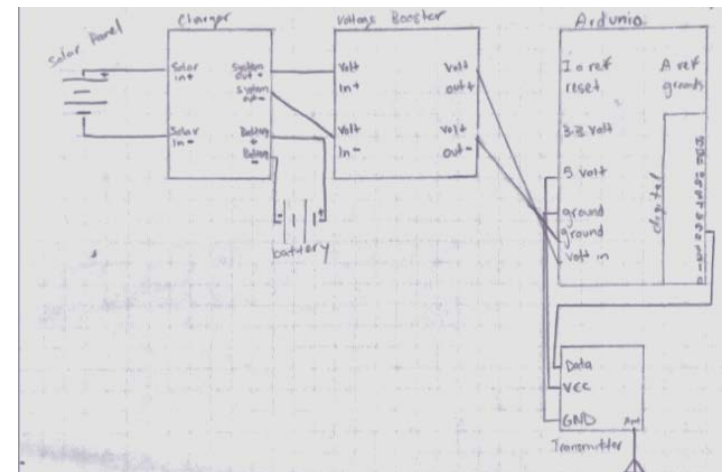 Solar Panel
Charger
Solar in+
Solar in-
System out+
System out-
Battery +
Battery -
battery
Voltage Booster
Volt In+
Volt In-
Volt out+
Volt out-
Ardunio
Io ref
reset
3.3 volt
5 volt
ground
ground
volt in
A ref
grounds
digital
Data
VCC
GND
Ant
Transmitter